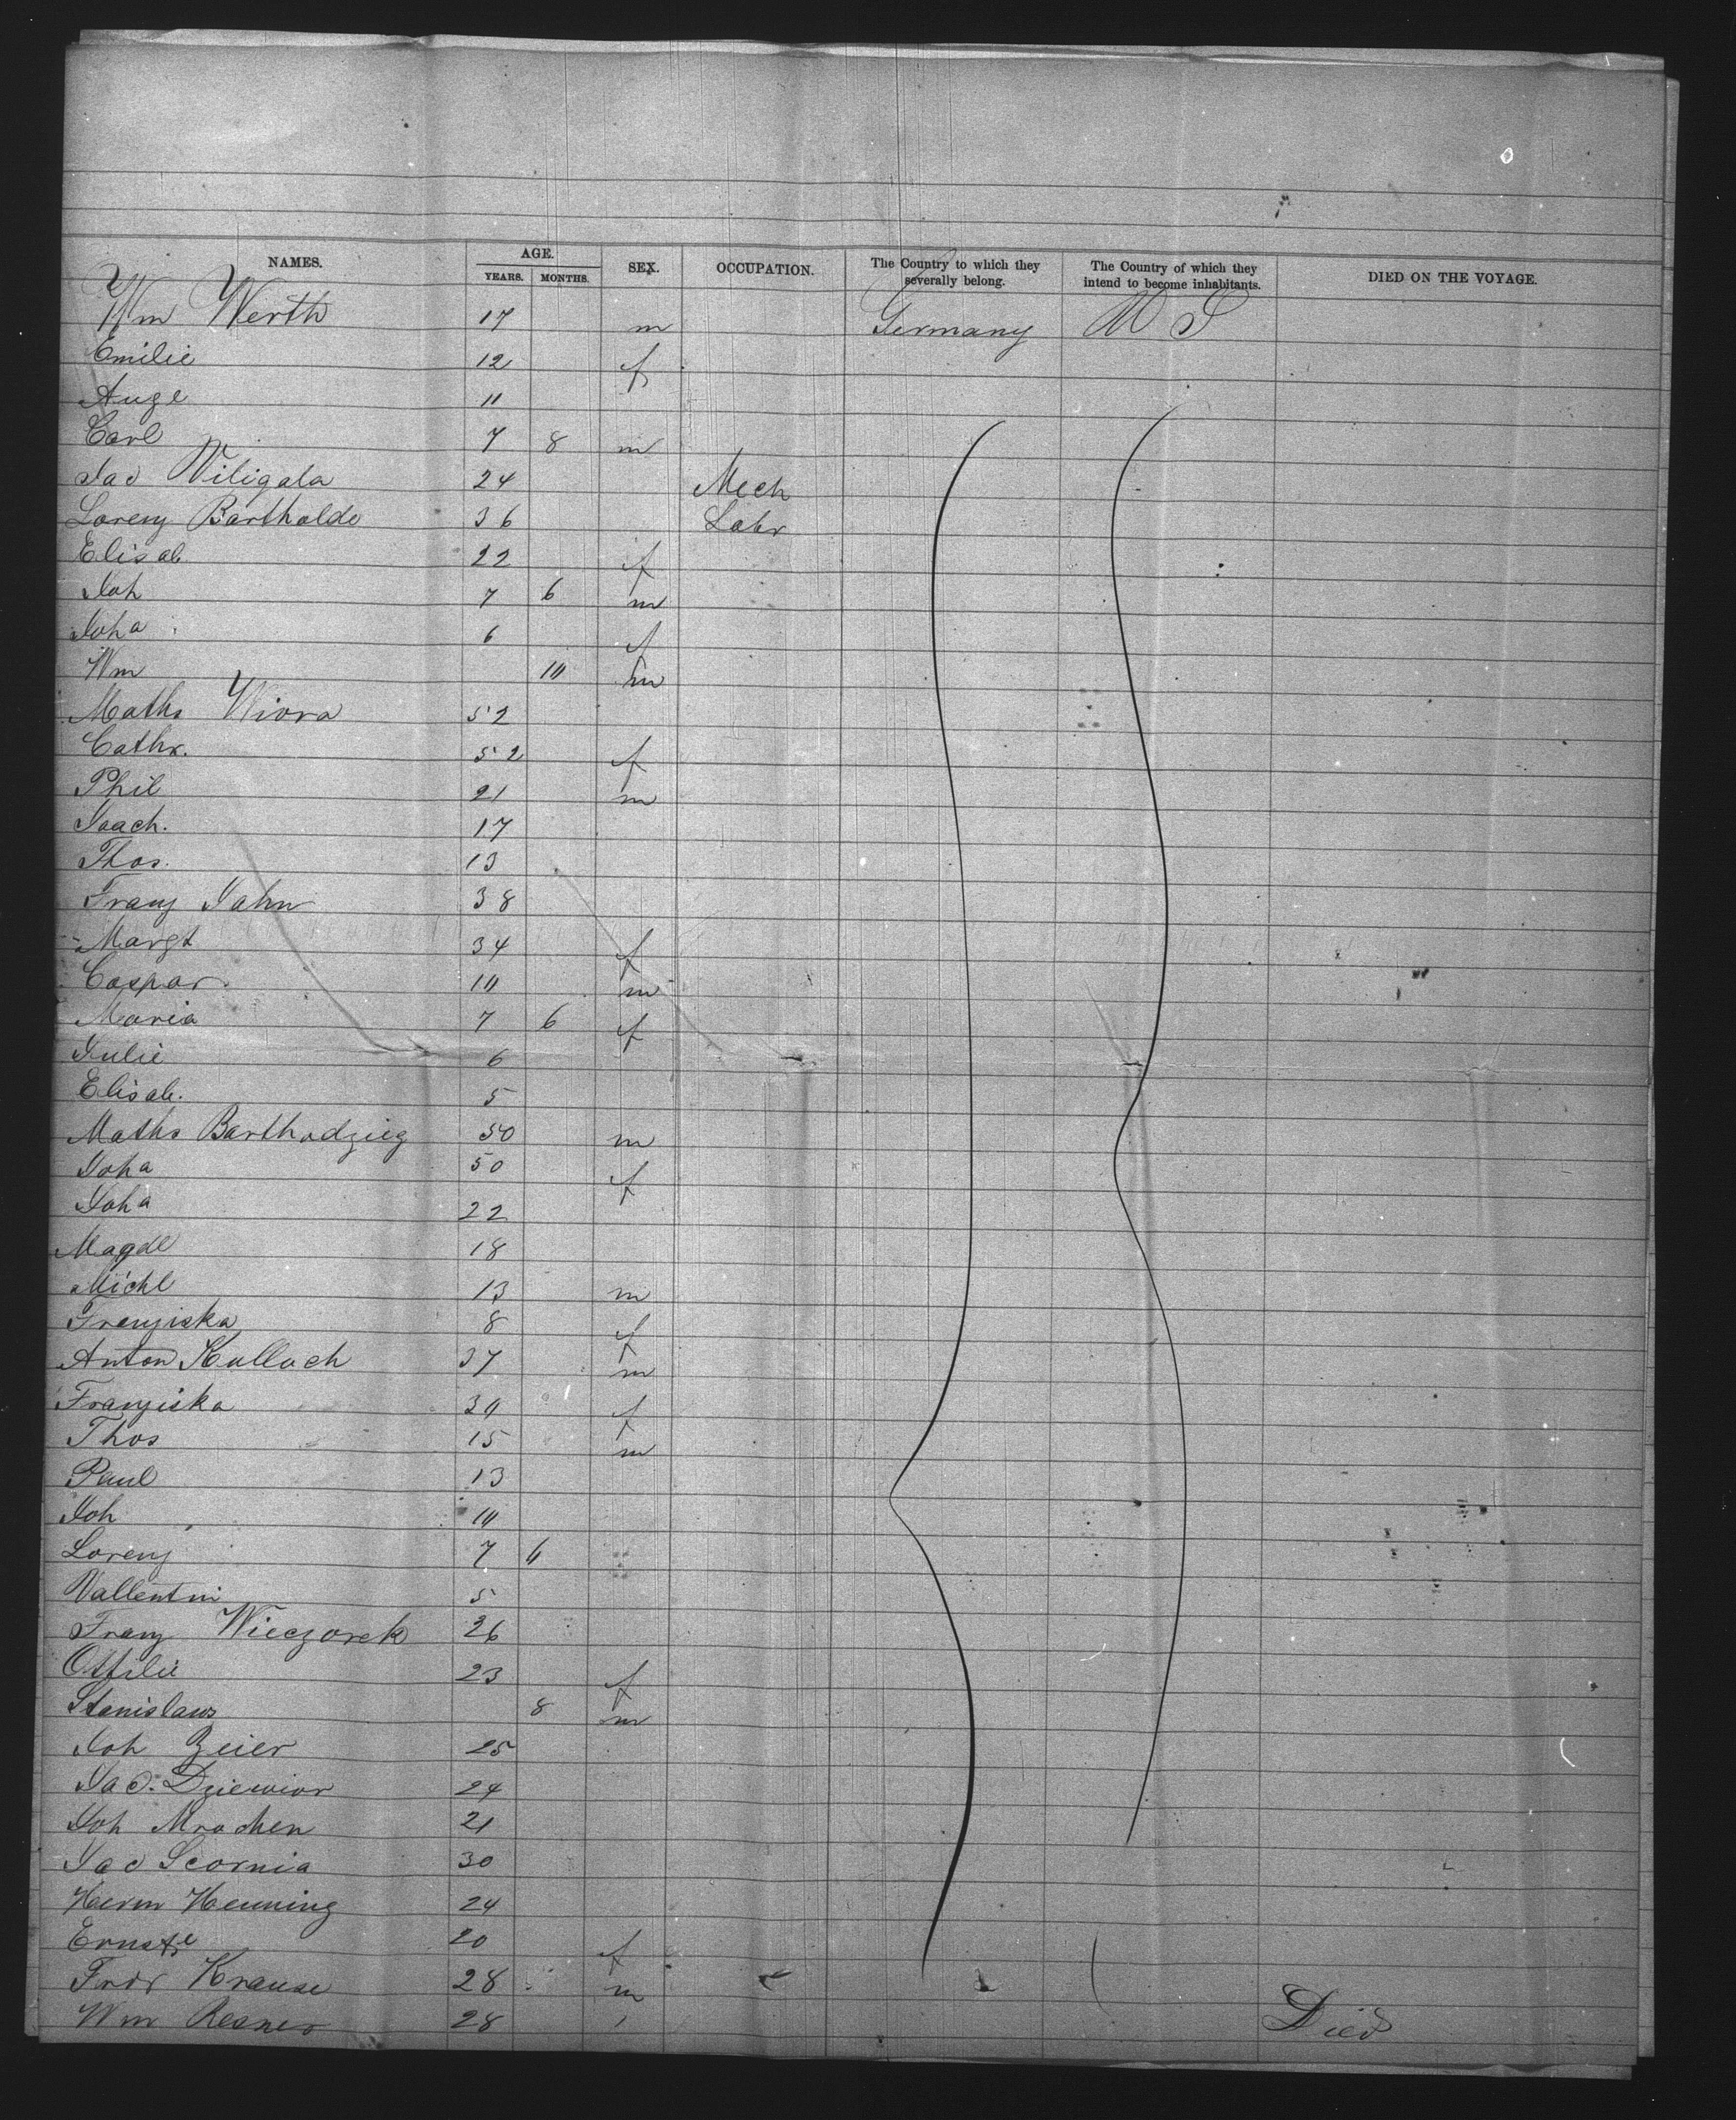 NAMES. AGE. SEX. OCCUPATION. The Country to which they severally belong. The Country of which they intend to become inhabitants. DIED ON THE VOYAGE.
YEARS. MONTHS.
Wm Werth 17 m Germany U S
Emilie 12 f
Auge 11
Carl 7 8 m
Jac Wiligala 24 Mech
Lorenz Bartholde 36 Labr
Elisab. 22 f
Joh 7 6 m
Joha 6 f
Wm 10 m
Maths Wiora 52
Cathr. 52 f
Phil 21 m
Joach. 17
Thos. 13
Franz Jahn 38
Margt 34 f
Caspar 10 m
Maria 7 6 f
Julie 6
Elisab. 5
Maths Barthodzieg 50 m
Joha 50 f
Joha 22
Magdl 18
Michl 13 m
Franziska 8 f
Anton Kulloch 37 m
Franziska 30 f
Thos 15 m
Paul 13
Joh 10
Lorenz 7 6
Vallentin 5
Franz Wieczorek 26
Ottilie 23 f
Stanislaus 8 m
Joh Zeier 25
Jac. Dziewior 24
Joh Mrochen 21
Jac Scornia 30
Herm Henning 24
Ernste 20 f
Fridr Krause 28 m
Wm Resner 28 Died